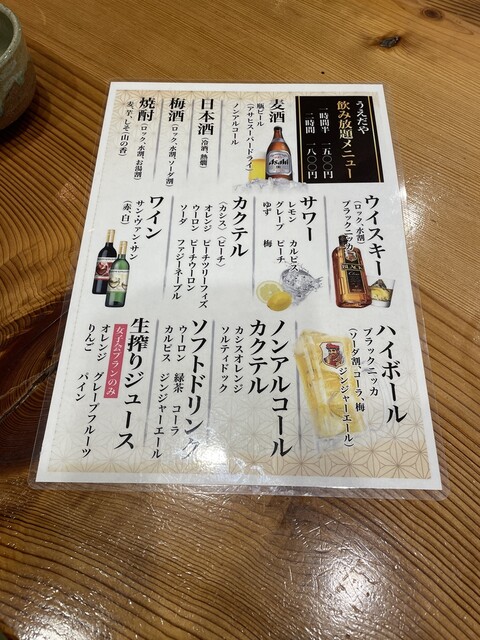 うえだや
飲み放題メニュー
一時間半 一五〇〇円
二時間 一八〇〇円
麦酒
瓶ビール
(アサヒスーパードライ)
ノンアルコール
日本酒
(冷酒、熱燗)
梅酒
(ロック、水割、ソーダ割)
焼酎
(ロック、水割、お湯割)
麦、芋、しそ(山の香)
ウイスキー
(ロック、水割)
ブラックニッカ
サワー
レモン カルピス
グレープ ピーチ
ゆず 梅
カクテル
(カシス) (ピーチ)
オレンジ ピーチツリーフィズ
ウーロン ピーチウーロン
ソーダ ファジーネーブル
ワイン
サン・ヴァン・サン
(赤、白)
ハイボール
ブラックニッカ
(ソーダ割、コーラ、梅
ジンジャーエール)
ノンアルコール
カクテル
カシスオレンジ
ソルティドック
ソフトドリンク
ウーロン 緑茶 コーラ
カルピス ジンジャーエール
生搾りジュース
女子会プランのみ
オレンジ グレープフルーツ
りんご パイン
Asahi
BLACK